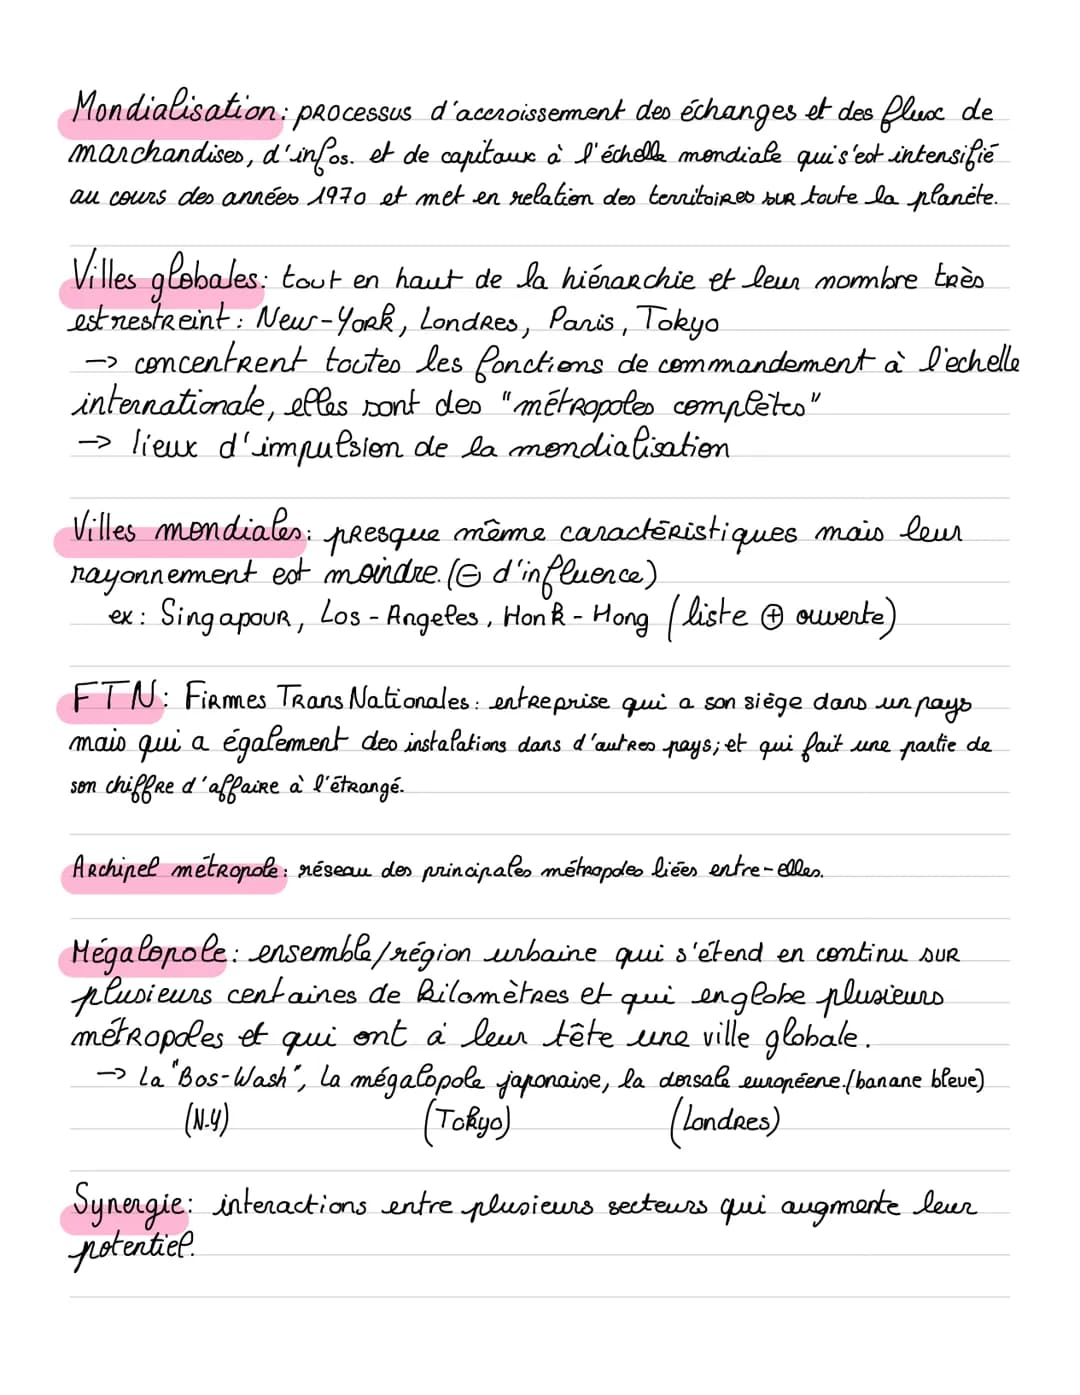 Mondialisation : processus d'accroissement des échanges et des flux de
marchandises, d'infos. et de capitaux à l'échelle mondiale qui s'est intensifié
au cours des années 1970 et met en relation des territoires sur toute la planète.
Villes globales : tout en haut de la hiérarchie et leur nombre très
est restreint : New-York, Londres, Paris, Tokyo
-> concentrent toutes les fonctions de commandement à l'echelle
internationale, elles sont des "métropoles complètes"
-> lieux d'impulsion de la mondialisation
Villes mondiales : presque même caractéristiques mais leur
rayonnement est moindre. (⊖ d'influence)
ex : Singapour, Los-Angeles, Honk-Hong (liste ⊕ ouverte)
FTN : Firmes TransNationales : entreprise qui a son siège dans un pays
mais qui a également des instalations dans d'autres pays; et qui fait une partie de
son chiffre d'affaire à l'étrangé.
Archipel métropole : réseau des principales métropoles liées entre-elles.
Mégalopole : ensemble/région urbaine qui s'étend en continu sur
plusieurs centaines de kilomètres et qui englobe plusieurs
métropoles et qui ont à leur tête une ville globale.
-> La "Bos-Wash", La mégalopole japonaise, la dorsale européene. (banane bleue)
(N.Y) (Tokyo) (Londres)
Synergie : interactions entre plusieurs secteurs qui augmente leur
potentiel.